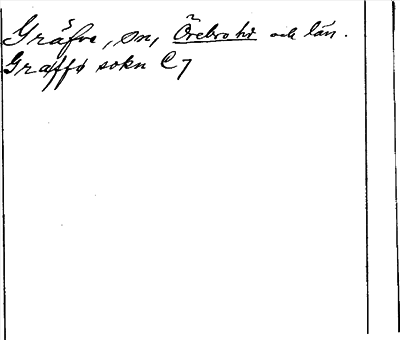 Gräfve, sn, Örebro hd och län.
Graffø sokn C 7